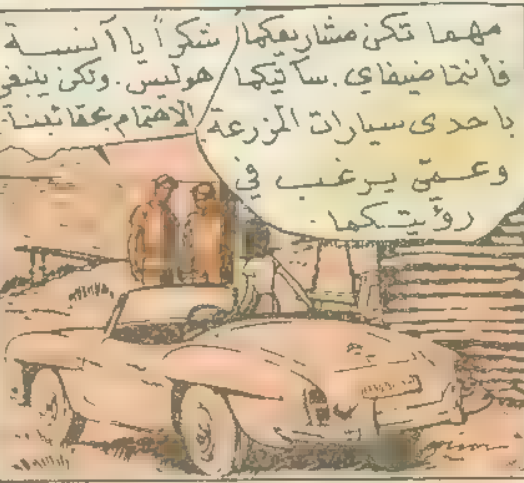 مهما تكن مشاريعكما
فأنتما ضيفاي. سآتيكما
باحدى سيارات المزرعة
وعمّي يرغب في
رؤيتكما.
شكراً يا آنسة
هوليس. ولكن ينبغي
الاهتمام بحقائبنا